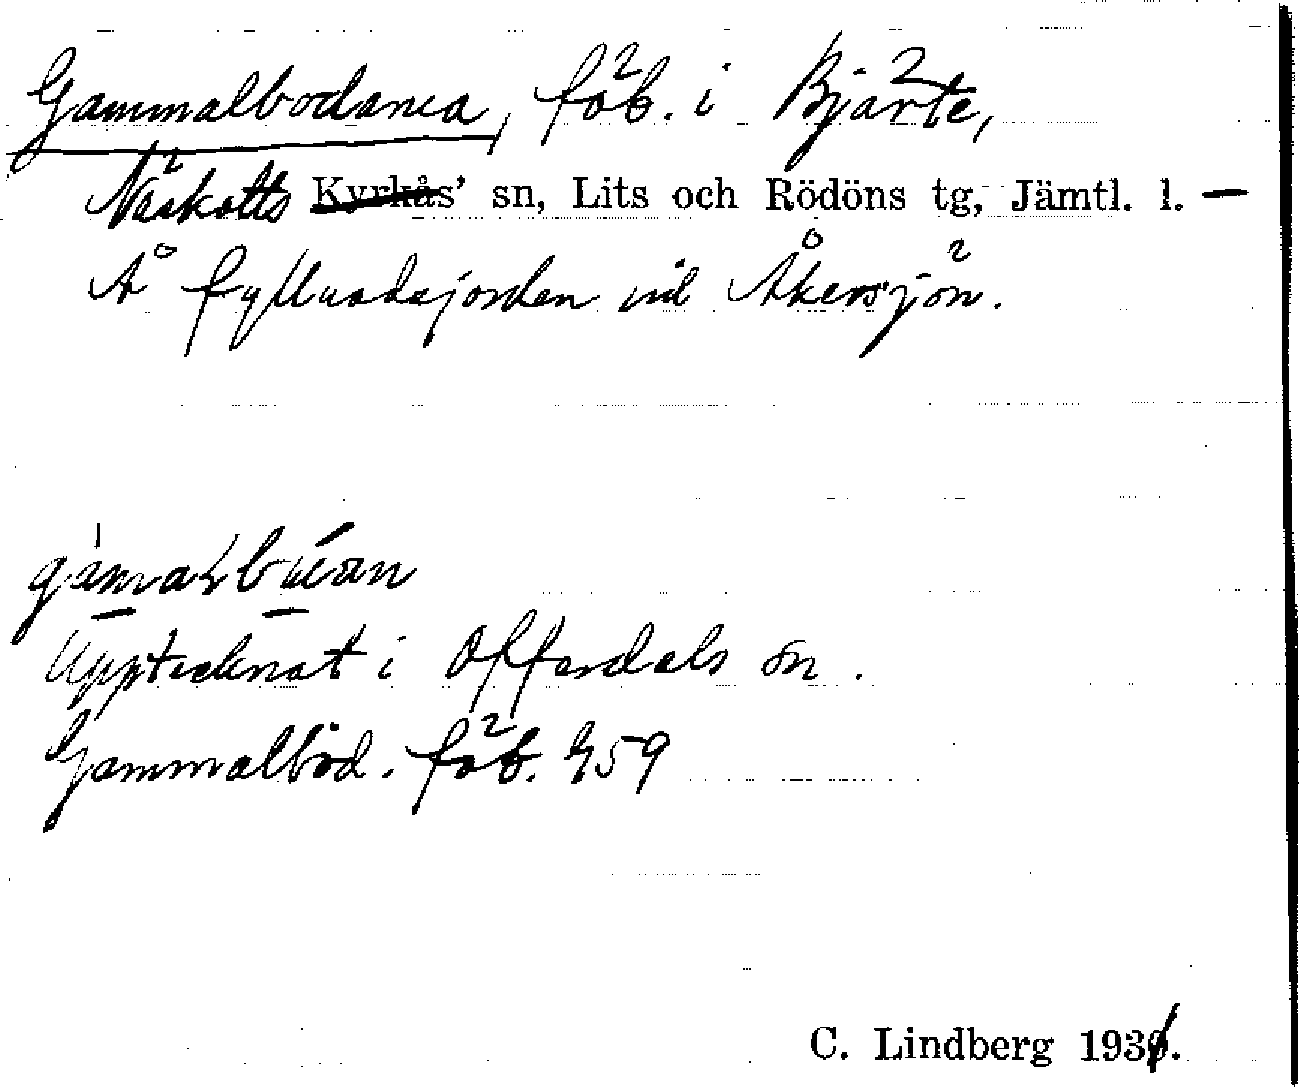 Gammalbodarna, fäb. i Bjärte,
Näskotts Kyrkås' sn, Lits och Rödöns tg, Jämtl. l. —
Å fyllnadsjorden vid Åkersjön.
Upptecknat i Offerdals sn.
Gammalbod. fäb. 459
C. Lindberg 1931.